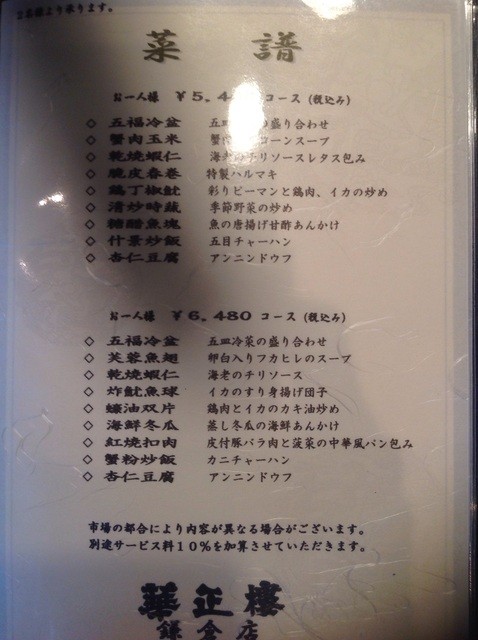 2名様より承ります。
菜譜
お一人様 ￥5.4 コース (税込み)
◇ 五福冷盆 五皿 の盛り合わせ
◇ 蟹肉玉米 蟹肉 コーンスープ
◇ 乾焼蝦仁 海老のチリソースレタス包み
◇ 脆皮春巻 特製ハルマキ
◇ 鶏丁椒魷 彩りピーマンと鶏肉、イカの炒め
◇ 清炒時蔬 季節野菜の炒め
◇ 糖醋魚塊 魚の唐揚げ甘酢あんかけ
◇ 什景炒飯 五目チャーハン
◇ 杏仁豆腐 アンニンドウフ
お一人様 ￥6.480 コース (税込み)
◇ 五福冷盆 五皿冷菜の盛り合わせ
◇ 芙蓉魚翅 卵白入りフカヒレのスープ
◇ 乾焼蝦仁 海老のチリソース
◇ 炸魷魚球 イカのすり身揚げ団子
◇ 蠔油双片 鶏肉とイカのカキ油炒め
◇ 海鮮冬瓜 蒸し冬瓜の海鮮あんかけ
◇ 紅焼扣肉 皮付豚バラ肉と菠菜の中華風パン包み
◇ 蟹粉炒飯 カニチャーハン
◇ 杏仁豆腐 アンニンドウフ
市場の都合により内容が異なる場合がございます。
別途サービス料10%を加算させていただきます。
華正樓
鎌倉店